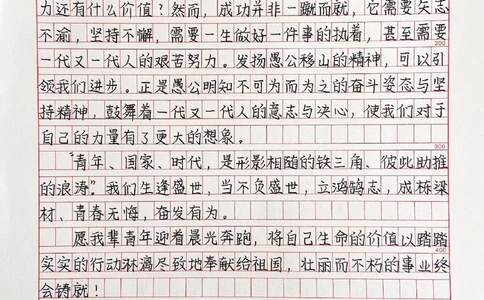 力还有什么价值？然而，成功并非一蹴而就，它需要矢志
不渝，坚持不懈，需要一生做好一件事的执着，甚至需要
200
一代又一代人的艰苦努力。发扬愚公移山的精神，可以引
领我们进步。正是愚公明知不可为而为之的奋斗姿态与坚
持精神，鼓舞着一代又一代人的意志与决心，使我们对于
自己的力量有了更大的想象。
300
“青年、国家、时代，是形影相随的铁三角、彼此助推
的浪涛”。我们生逢盛世，当不负盛世，立鸿鹄志，成栋梁
材、青春无悔，奋发有为。
愿我辈青年迎着晨光奔跑，将自己生命的价值以踏踏
400
实实的行动淋漓尽致地奉献给祖国，壮丽而不朽的事业终
会铸就！